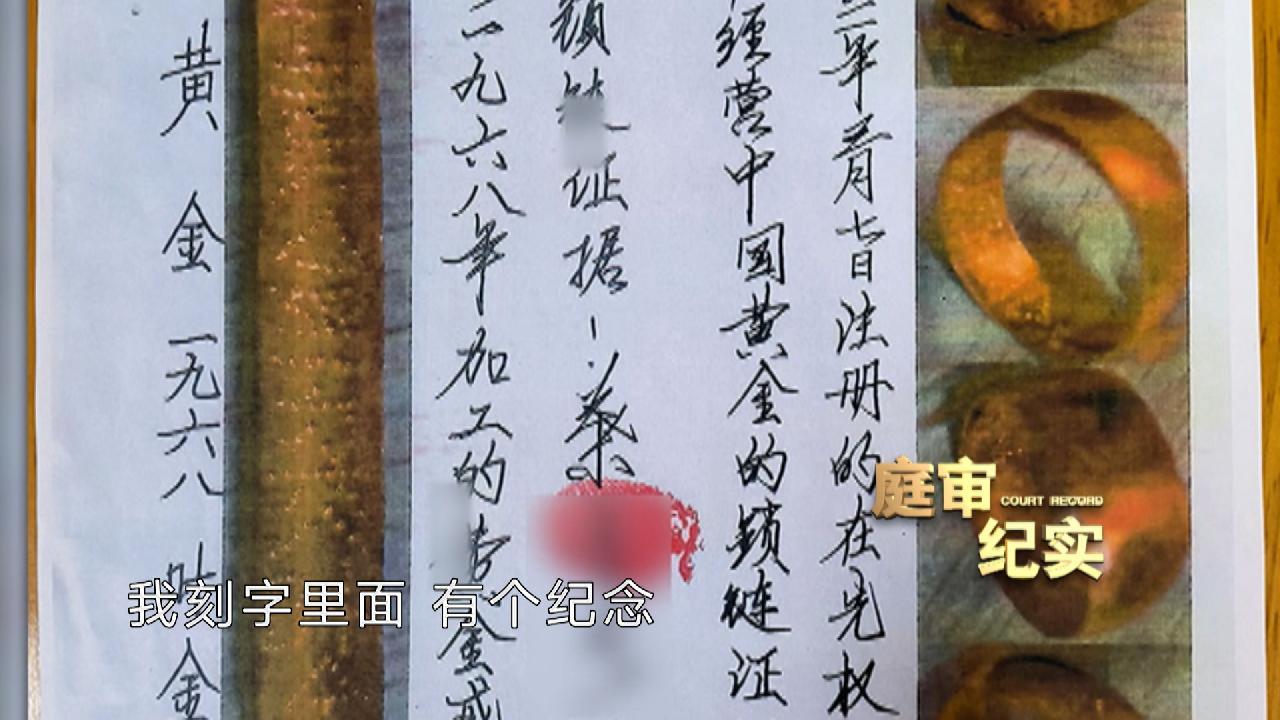 二年 月七日注册的在先权
经营中国黄金的锁链证
锁 证据！蔡
一九六八年加工的 金戒
黄金一九六八 金
庭审
COURT RECORD
纪实
我刻字里面 有个纪念